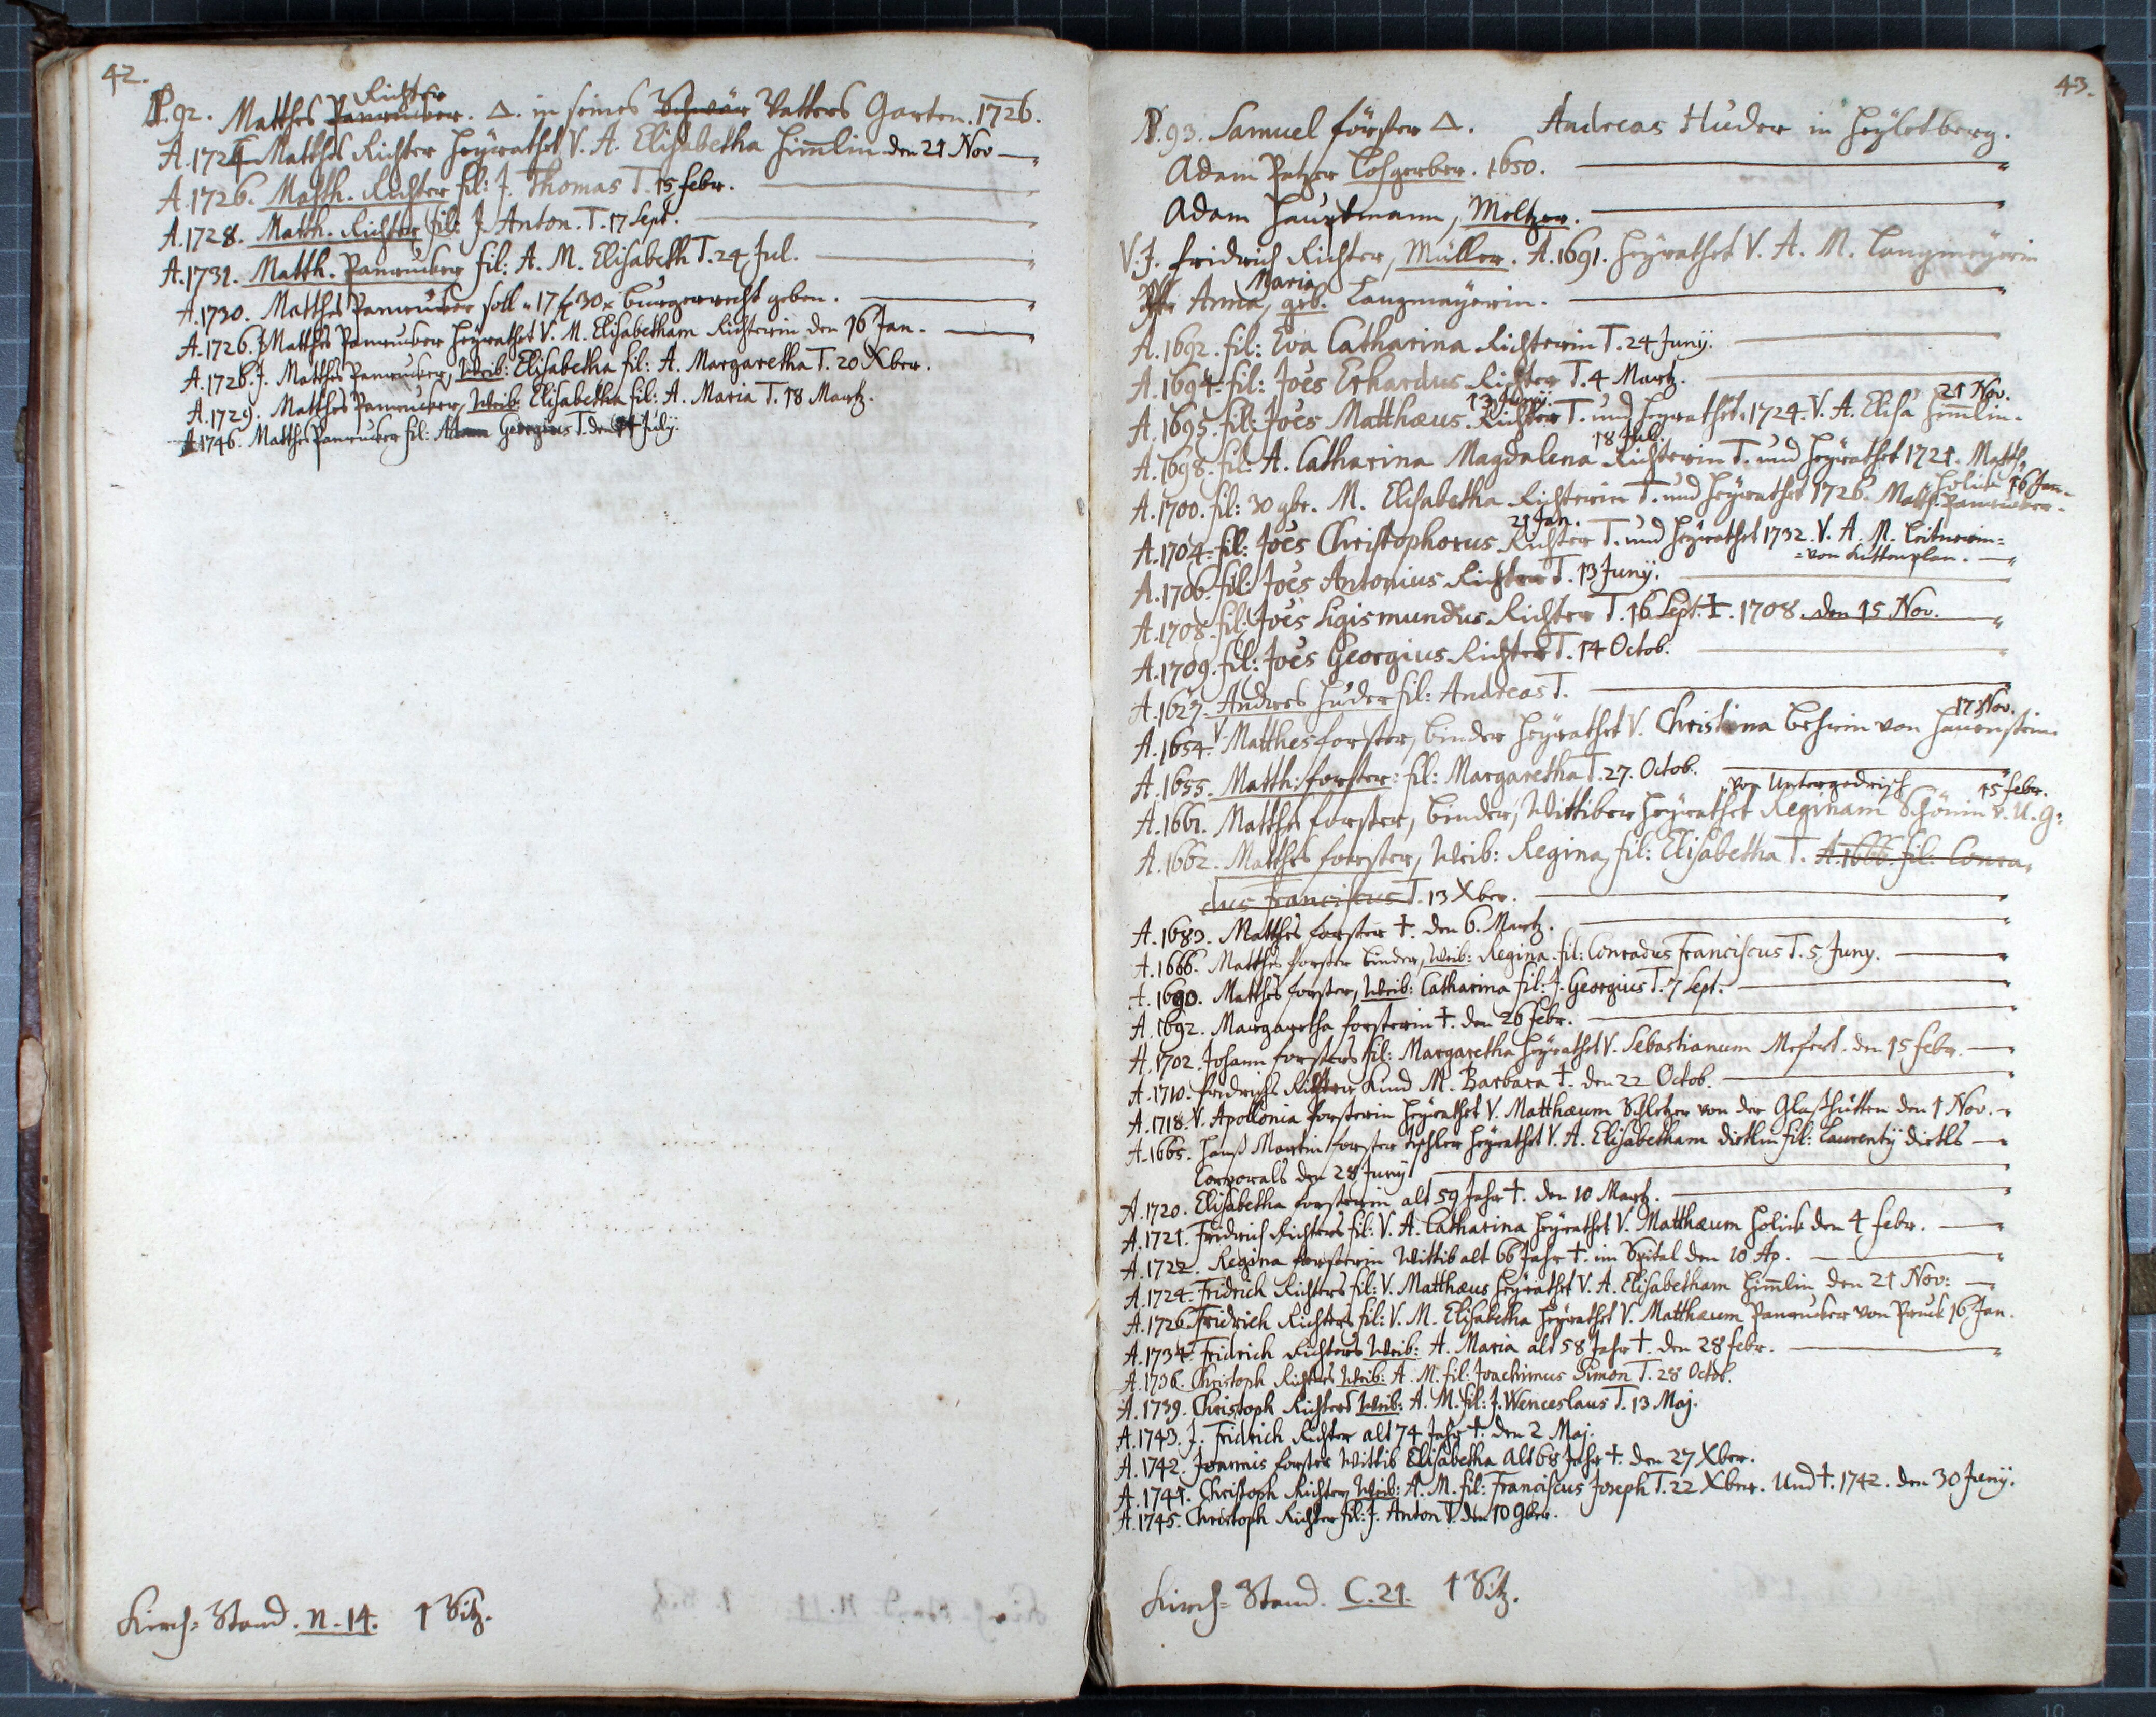 42.
N. 92. Matthes Panrucker Richter. Δ. in seines Schwär Vatters Garten. 1726.
A. 1724 Matthes Richter heÿrathet V. A. Elisabetha Him̄lin den 21 Nov
A. 1726. Matth. Richter fil: J. Thomas T. 15 febr.
A. 1728. Matth. Richter fil: J. Anton. T. 17 Sept.
A. 1731. Matth. Panrucker fil: A. M. Elisabeth T. 24 Jul.
A. 1730. Matthes Panrucker soll 17 f 30 x burgerrecht geben.
A. 1726. J. Matthes Panrucker heÿrathet V. M. Elisabetham Richterin den 16 Jan.
A. 1726. J. Matthes Panrucker, Weib: Elisabetha fil: A. Margaretha T. 20 Xber.
A. 1729. Matthes Panrucker, Weib: Elisabetha fil: A. Maria T. 18 Martz.
A. 1746. Matthes Panrucker fil: Adam Georgius T. den Julÿ.
Kirch= Stand. n. 14. 1 Sitz.
43.
N. 93. Samuel förster Δ. Andreas Huder in heÿletberg.
Adam Patzer Lohgerber. 1650.
Adam Hauptmann, Meltzer.
V. J. fridrich Richter, Müller. A. 1691. heÿrathet V. A. M. Langmeÿerin
Anna Maria, geb. Langmaÿerin.
A. 1692. fil: Eva Catharina Richterin T. 24 Junÿ.
A. 1694. fil: Joēs Erhardus Richter T. 4 Martz.
A. 1695. fil: Joēs Matthæus Richter T. 13 Junÿ. und heÿrathet 1724. V. A. Elisa Him̄lin. 21 Nov.
A. 1698. fil: A. Catharina Magdalena Richterin T. 18 Jul. und heÿrathet 1721. Matth. Holick
A. 1700. fil: 30 9br. M. Elisabetha Richterin T. und heÿrathet 1726. Matth. Panrucker. 16 Jan.
A. 1704. fil: Joēs Christophorus Richter T. 21 Jan. und heÿrathet 1732. V. A. M. Leitnerin=
=von Kuttenplan.
A. 1706. fil: Joēs Antonius Richter T. 13 Junÿ.
A. 1708. fil: Joēs Sigismundus Richter T. 16 Sept. †. 1708. den 15 Nov.
A. 1709. fil: Joēs Georgius Richter T. 14 Octob.
A. 1627. Andres Huder fil: Andreas T.
A. 1654. V. Matthes forster, binder heÿrathet V. Christina Beherin von Hauenstein 17 Nov.
A. 1655. Matth: forster: fil: Margaretha T. 27. Octob.
A. 1661. Matthes forster, binder, Wittiber heÿrathet Reginam Schönin v. U. g: von Untergodrisch 15 febr.
A. 1662. Matthes forster, Weib: Regina, fil: Elisabetha T. A. 1666. fil: Conra-
dus Franciscus T. 13 Xber.
A. 1683. Matthes forster †. den 6. Martz.
A. 1666. Matthes forster binder, Weib: Regina. fil: Conradus Franciscus T. 5 Juny.
A. 1690. Matthes forster, Weib: Catharina fil: J. Georgius T. 7 Sept.
A. 1692. Margaretha forsterin †. den 26 febr.
A. 1702. Johann forsters fil: Margaretha heÿrathet V. Sebastianum Mefert. den 15 febr.
A. 1710. fridrichs Richters Kind M. Barbara †. den 22 Octob.
A. 1718. V. Apollonia forsterin heÿrathet V. Matthæum Schletzer von der Glaßhütten den 1 Nov.
A. 1665. Hanß Martin forster tischler heÿrathet V. A. Elisabetham dietlin fil: Laurentÿ dietls
Corporals den 28 Junÿ
A. 1720. Elisabetha forsterin alt 59 Jahr †. den 10 Martz.
A. 1721. Fridrich Richters fil: V. A. Catharina heÿrathet V. Matthæum Holick den 4 febr.
A. 1722. Regina forsterin Wittib alt 66 Jahr †. im Spital den 10 Ap.
A. 1724. Fridrich Richters fil: V. Matthæus heÿrathet V. A. Elisabetham Him̄lin den 21 Nov:
A. 1726. Fridrich Richters fil: V. M. Elisabetha heÿrathet V. Matthæum Panrucker von Pruck 16 Jan.
A. 1734. Fridrich Richters Weib: A. Maria alt 58 Jahr †. den 28 febr.
A. 1736. Christoph Richters Weib: A. M. fil: Joachimus Simon T. 28 Octob.
A. 1739. Christoph Richters Weib: A. M. fil: J. Wenceslaus T. 13 Maj.
A. 1743. J. Fridrich Richter alt 74 Jahr †. den 2 Maj.
A. 1742. Joannis forster Wittib Elisabetha Alt 68 Jahr †. den 27 Xber.
A. 1741. Christoph Richter, Weib: A. M. fil: Franciscus Joseph T. 22 Xber. Und †. 1742. den 30 Junÿ.
A. 1745. Christoph Richter fil: J. Anton T. den 10 9ber.
Kirch= Stand. C. 21. 1 Sitz.